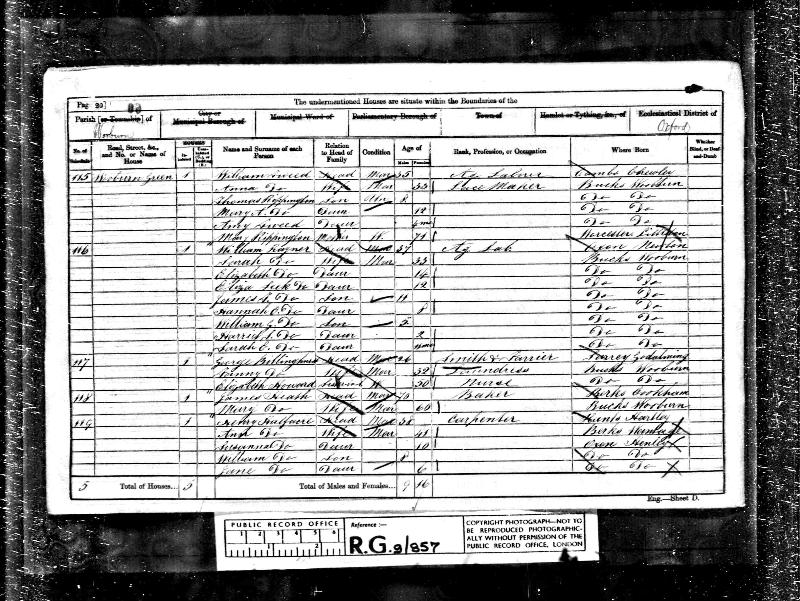 Pag 20] 
The undermentioned Houses are situate within the Boundaries of the
Parish [or Township] of
City or Municipal Borough of
Municipal Ward of
Parliamentary Borough of
Town of
Hamlet or Tything, &c., of
Ecclesiastical District of
Woburn
Oxford
No. of Schedule
Road, Street, &c., and No. or Name of House
HOUSES
Name and Surname of each Person
Relation to Head of Family
Condition
Age of
Males Females
Rank, Profession, or Occupation
Where Born
Whether Blind, or Deaf-and-Dumb
115 Wooburn Green 1 William Head Mar 35 Ag Labour
Anna Do Wife Mar 33 Lace Maker Bucks Wooburn
Thomas Rippington Son Un 8 Do Do
Mary A. Do Daur 12 Do Do
Amy Daur Do Do
Rippington W Worcester
116 1 William Head Mar 37 Ag Lab Oxon
Sarah Do Wife Mar 33 Bucks Wooburn
Elizabeth Do Daur 14 Do Do
Eliza Do Daur 12 Do Do
James Do Son 11 Do Do
Hannah C. Do Daur 8 Do Do
William G. Do Son 5 Do Do
Harriet Do Daur 2 Do Do
Sarah E. Do Daur Do Do
117 1 George Billinghurst Head Mar 26 Smith & Farrier Surrey Godalming
Do Wife Mar 32 Laundress Bucks Wooburn
Elizabeth Howard W 50 Nurse Do Do
118 1 James Heath Head Mar 70 Baker Berks Cookham
Mary Do Wife Mar 60 Bucks Wooburn
119 1 Henry Head Mar 38 Carpenter Hants Hartley
Ann Do Wife Mar 41 Berks
Susanna Do Daur 10 Oxon Henley
William Do Son 8 Do Do
Jane Do Daur 6 Do Do
5 Total of Houses... 5 Total of Males and Females... 9 16
Eng.—Sheet D.
PUBLIC RECORD OFFICE
1 2 3 4 5 6
1 2
Reference :—
R.G. 9/857
COPYRIGHT PHOTOGRAPH—NOT TO
BE REPRODUCED PHOTOGRAPHIC-
ALLY WITHOUT PERMISSION OF THE
PUBLIC RECORD OFFICE, LONDON